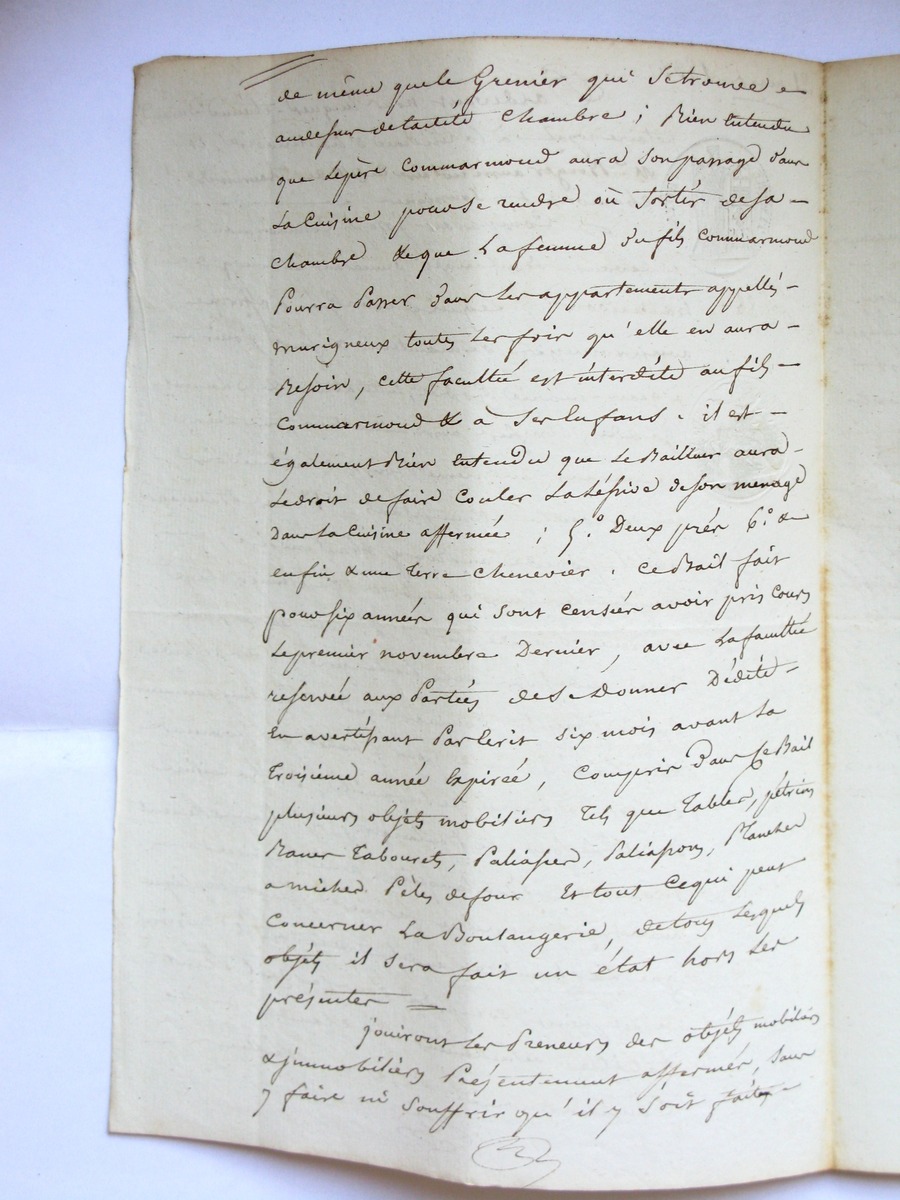 de même que le Grenier qui Se trouve
audessus de ladite Chambre ; Bien Entendu
que Le père Commarmond aura Son passage dans
La Cuisine pour Se rendre où Sortir de Sa
chambre & que La femme du fils Commarmond
Pourra Passer dans Les appartements appellés
murigneux toutes Les fois qu'elle en aura
Besoin, cette facultée est interdite au fils
Commarmond & a Ses Enfans. il est
également Bien Entendu que Le Bailleur aura
Le droit de faire Couler La Lésive de son menage
Dans La Cuisine affermée ; 5.° Deux prés 6.° &
enfin & une Terre Chenevier. Ce Bail fait
pour six années qui Sont Censées avoir pris Cours
Le premier novembre Dernier, avec La facultée
reservée aux Parties de Se Donner Dédite
En avertissant Par Ecrit Six mois avant La
Troisième année Expirée, Compris dans Ce Bail
plusieurs objets mobiliers Tels que Tables, pétrins
Bancs Tabourets, Paliasses, Paliassons, Planches
a miches Pèles de four Et tout Ce qui peut
Concerner La Boulangerie, de tous Lesquels
objets il Sera fait un état hors Les
présentes
jouiront Les Preneurs des objets mobiliers
& jmmobiliers Présentement affermés, Sans
y faire ni Souffrir qu'il y Soit faites